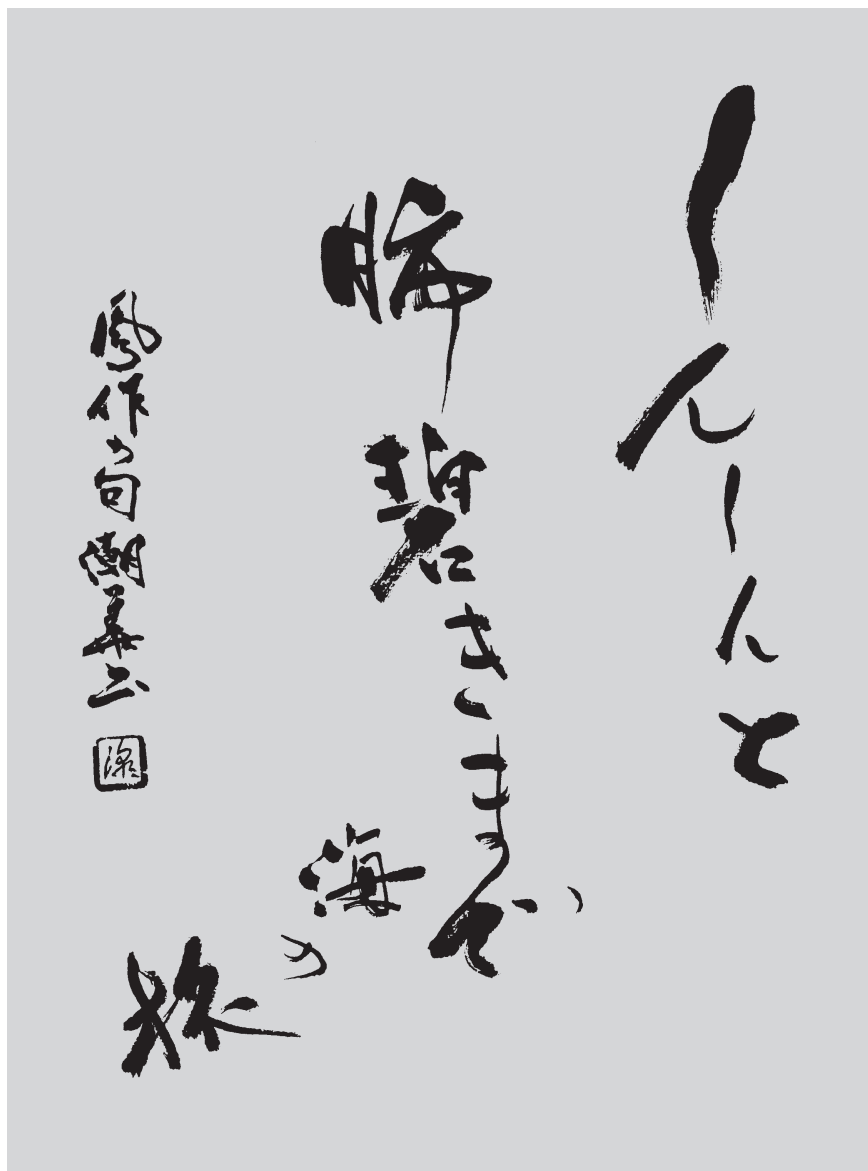 しんしんと
肺碧きまで
海の
旅
鳳作の句 潮華書